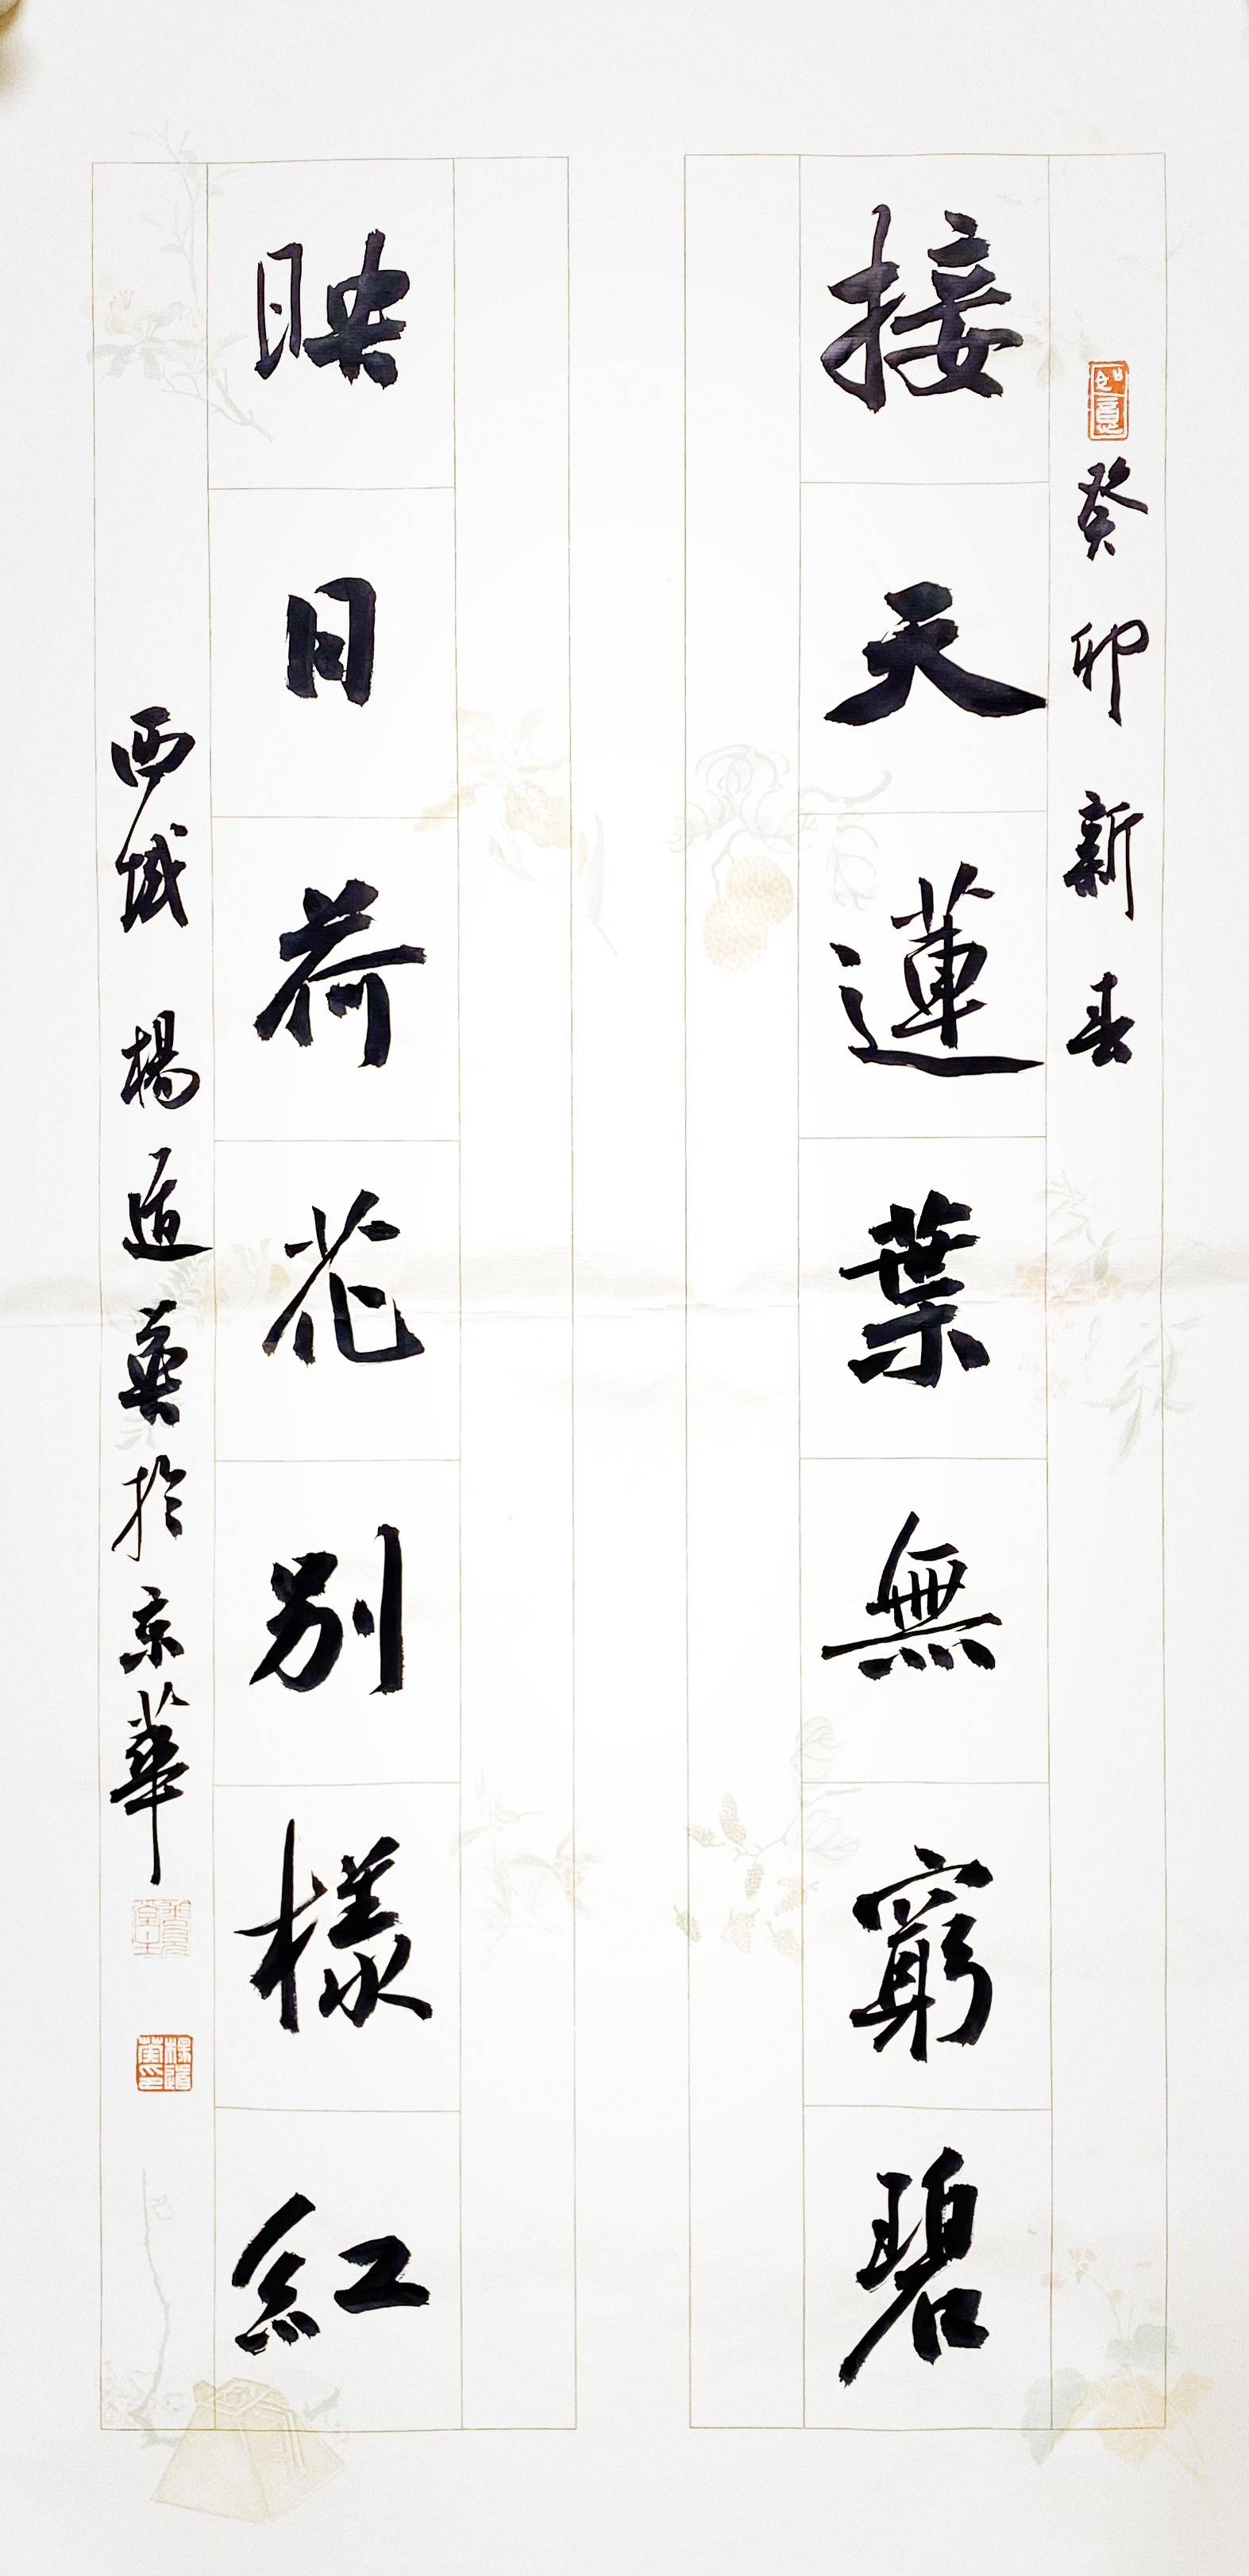 如意
癸卯新春
接天蓮葉無窮碧
映日荷花別樣紅
西域 楊道英於京華